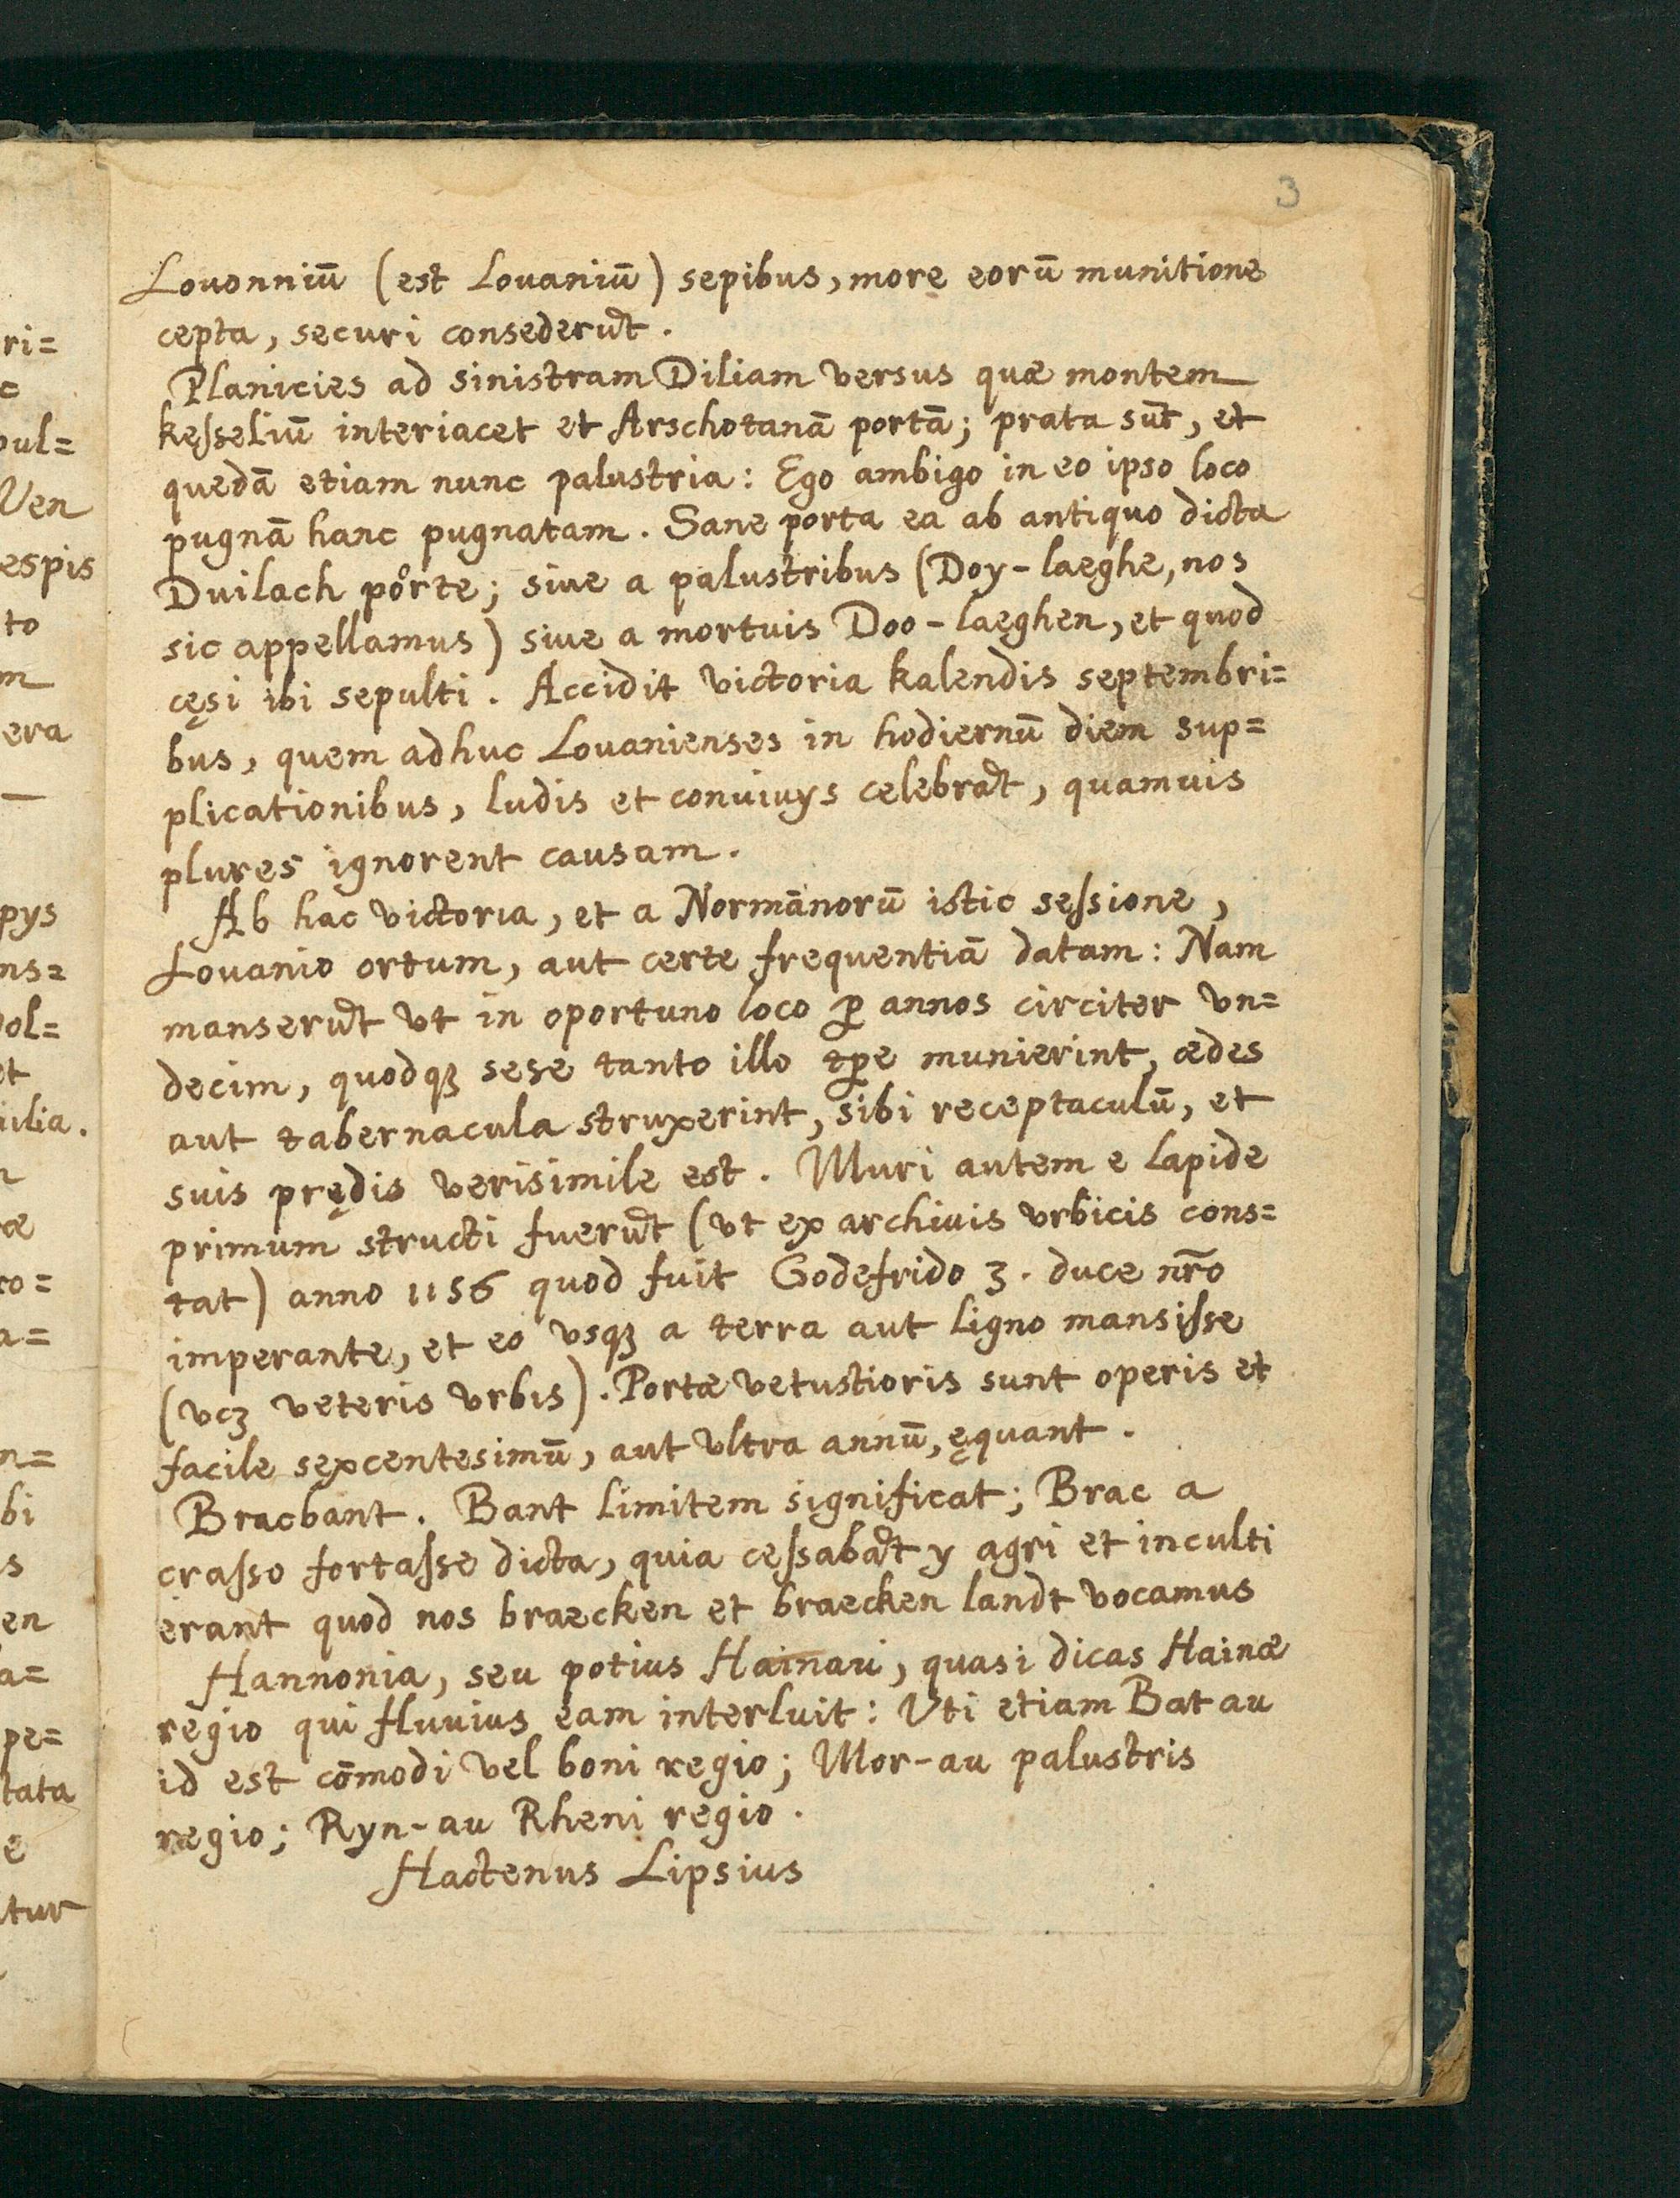 3
Louonniū (est Louaniū) sepibus, more eorū munitione
cepta, securi consederūt.
Planicies ad sinistram Diliam versus quæ montem
keſseliū interiacet et Arschotanā portā; prata sūt, et
quedā etiam nunc palustria: Ego ambigo in eo ipso loco
pugnā hanc pugnatam. Sane porta ea ab antiquo dicta
Duilach porte; siue a palustribus (Doy-laeghe, nos
sic appellamus) siue a mortuis Doo-laeghen, et quod
cęsi ibi sepulti. Accidit victoria kalendis septembri=
bus, quem adhuc Louanienses in hodiernū diem sup=
plicationibus, ludis et conuiuys celebrāt, quamuis
plures ignorent causam.
Ab hac victoria, et a Normānorū istic seſsione,
Louanio ortum, aut certe frequentiā datam: Nam
manserūt vt in oportuno loco ꝑ annos circiter vn=
decim, quodqꝫ sese tanto illo tꝑe munierint, ædes
aut tabernacula struxerint, sibi receptaculū, et
suis prędis verisimile est. Muri autem e lapide
primum structi fuerūt (vt ex archiuis vrbicis cons=
tat) anno 1156 quod fuit Godefrido 3. duce nr̄o
imperante, et eo vsqꝫ a terra aut ligno mansiſse
(vcꝫ veteris vrbis). Portæ vetustioris sunt operis et
facile sexcentesimū, aut vltra annū, ęquant.
Bracbant. Bant limitem significat; Brac a
craſso fortaſse dicta, quia ceſsabāt y agri et inculti
erant quod nos braecken et braecken landt vocamus
Hannonia, seu potius Hainau, quasi dicas Hainæ
regio qui fluuius eam interluit: Vti etiam Bat au
id est cōmodi vel boni regio; Mor-au palustris
regio; Ryn-au Rheni regio.
Hactenus Lipsius